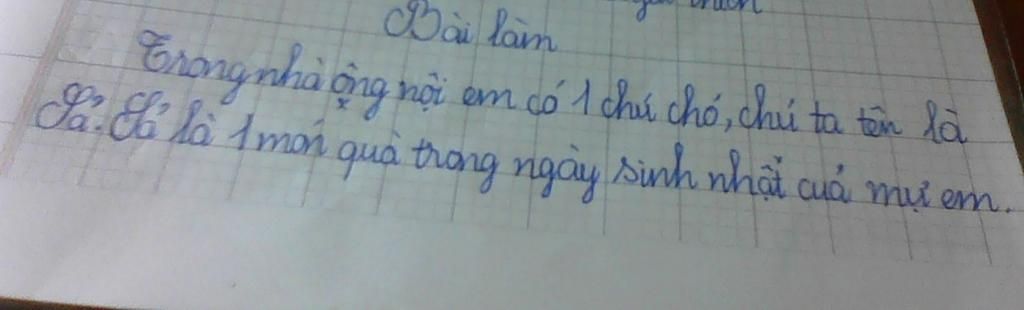 Bài làm
Trong nhà ông nội em có 1 chú chó, chú ta tên là
là 1 món quà trong ngày sinh nhật củả mụ em.